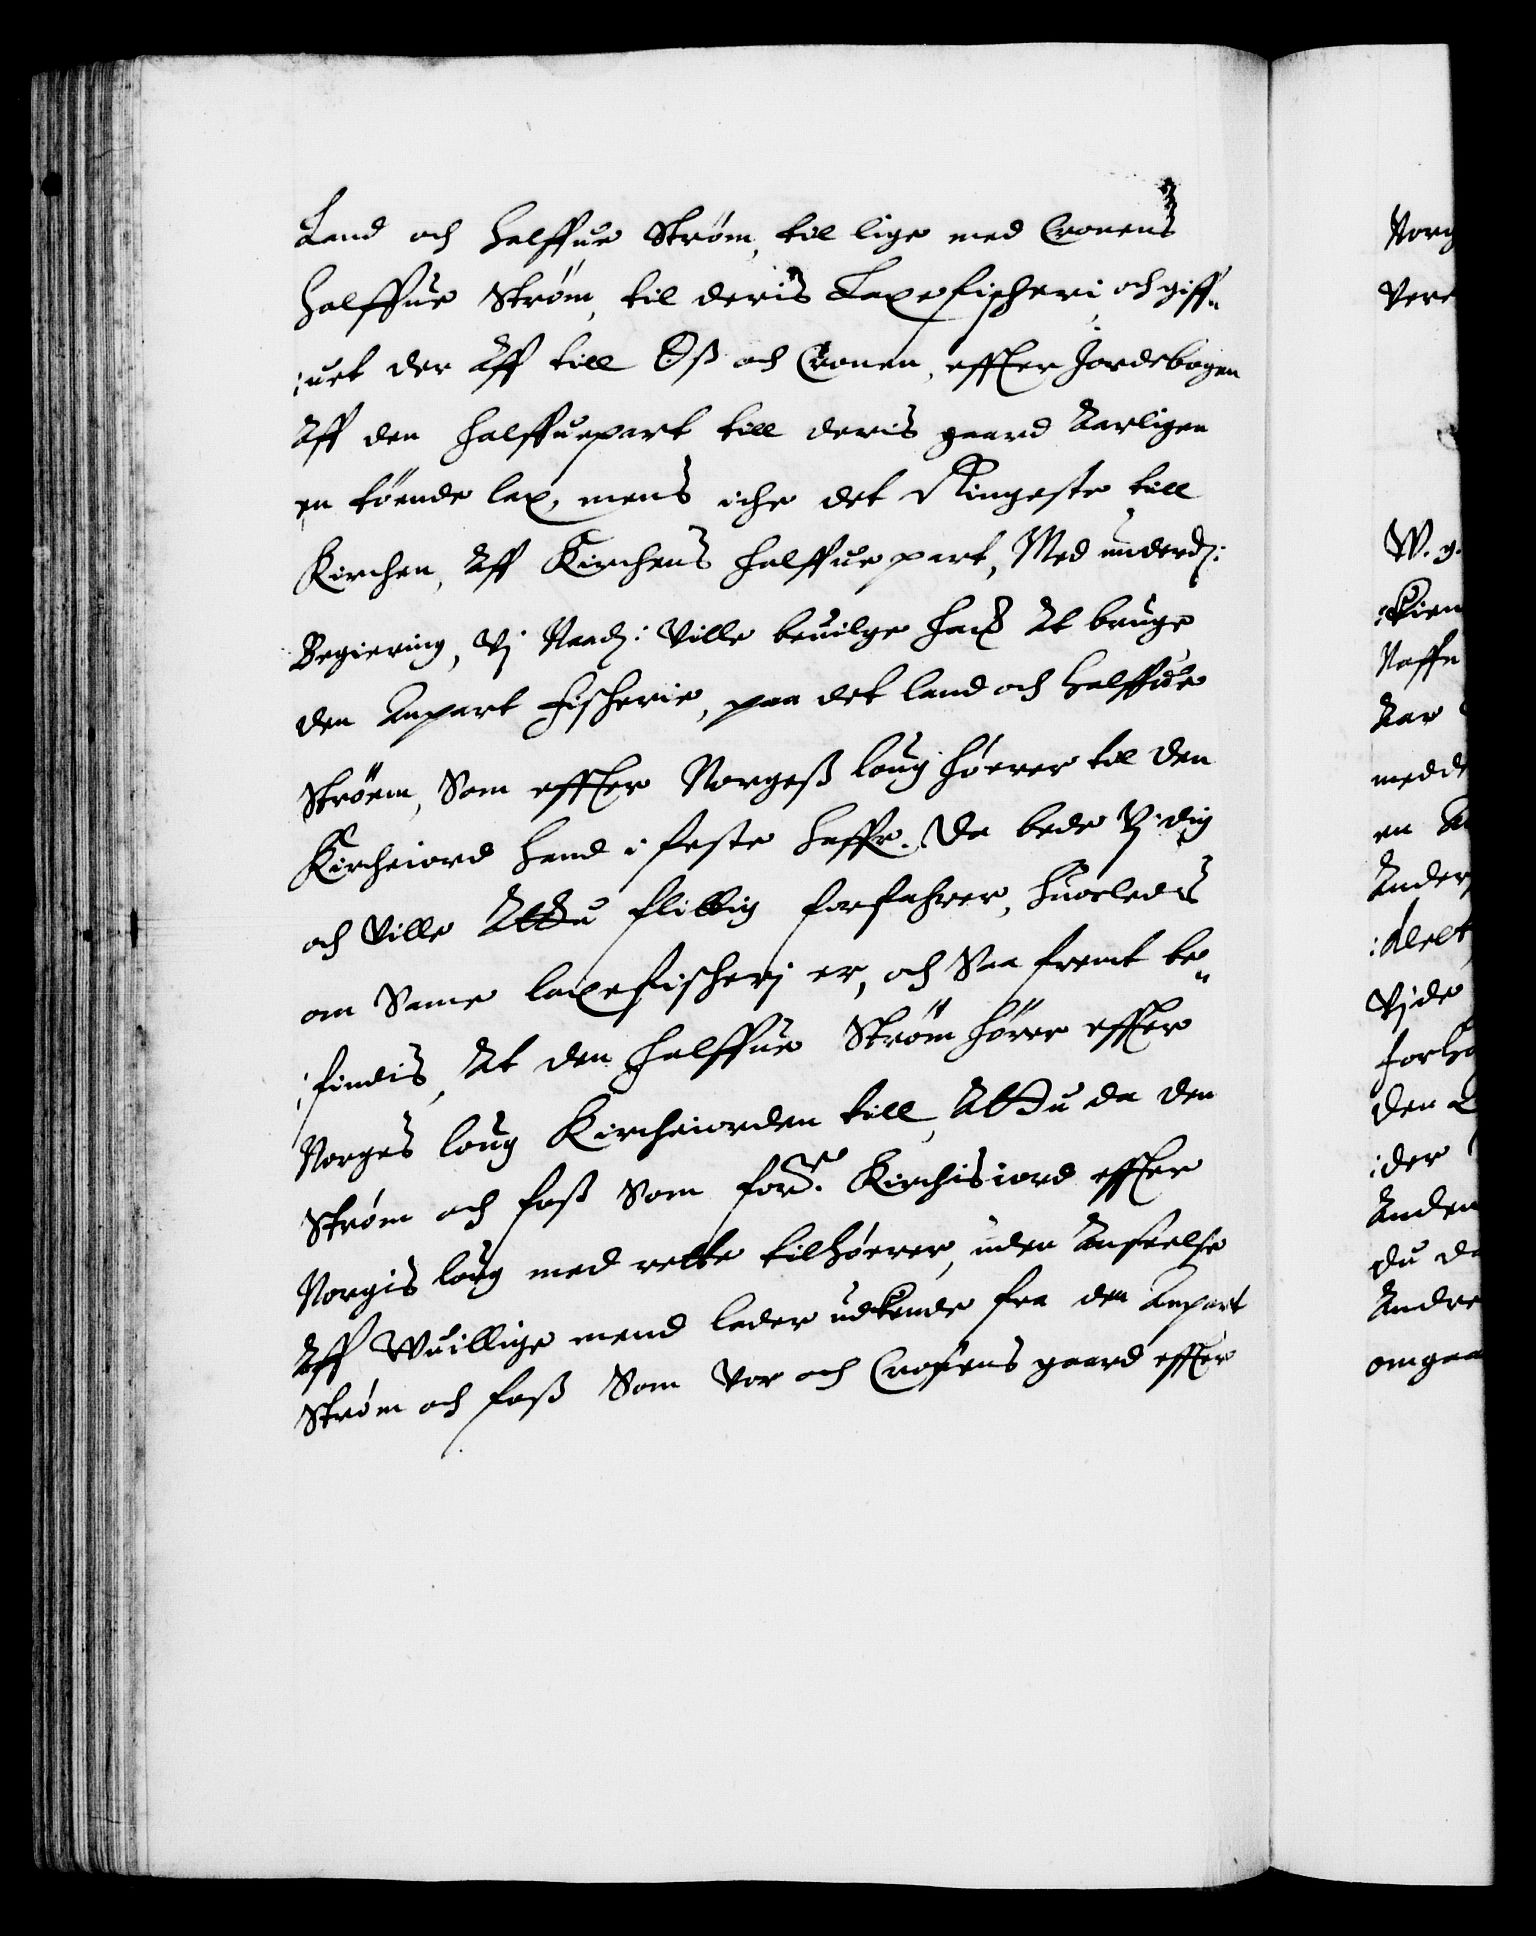 Land och halffue Strøm, til lige med Cronens
halffue Strøm, til deris Laxefischeri, och giff„
:uet der Aff till Oß och Cronen, effter Jordebogen
Aff den halffuepart till deris gaard Aarligen
en tøende lax, mens iche det Ringeste till
Kirchen, Aff Kirchens halffue part, Med underd:
Begiering, Vj Naad: Ville beuilge ham At bruge
den Anpart Fischerie, paa det land och halffue
Strøm, Som effter Norgeß loug høerer til den
Kircheiord hand i feste haffr. Da bede Vj dig
och Ville Attdu flittig forfahrer, huorledis
om Same laxefischerj er, och Saa fremt be„
:findis, At den halffue Strøm hører effter
Norges loug Kircheiorden till, Attdu da den
Strøm och foß Som forne. Kirchis iord effter
Norgis loug med rette tilhøerer, uden Anseelse
Aff Wuillige mend lader udkende fra den Anpart
Strøm och foß Som Vor och Cronens gaard effter
Norg
Vere
W. g.
:kien
Naffn
Aar
medde
en
Ander
:deelt
Vjde
forho
den
:der
Anden
du da
Andre
omgaa